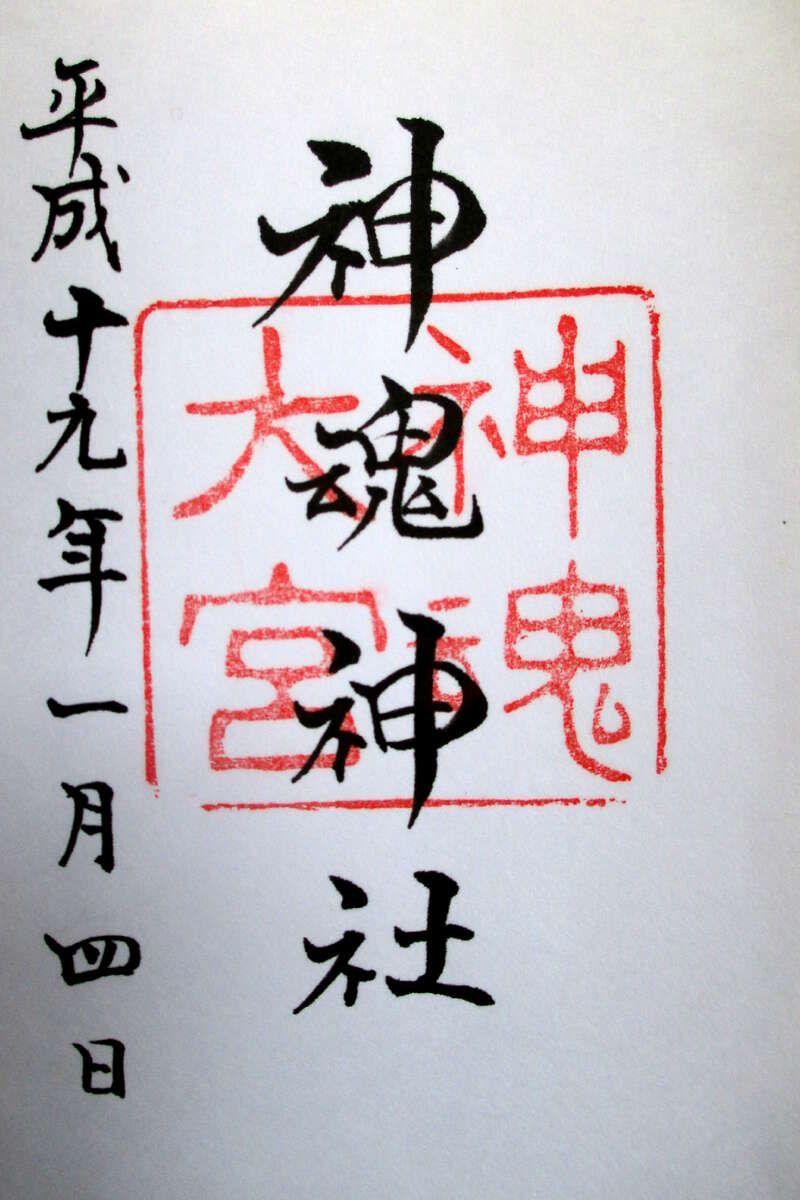 神魂神社
神魂
大宮
平成十九年一月四日